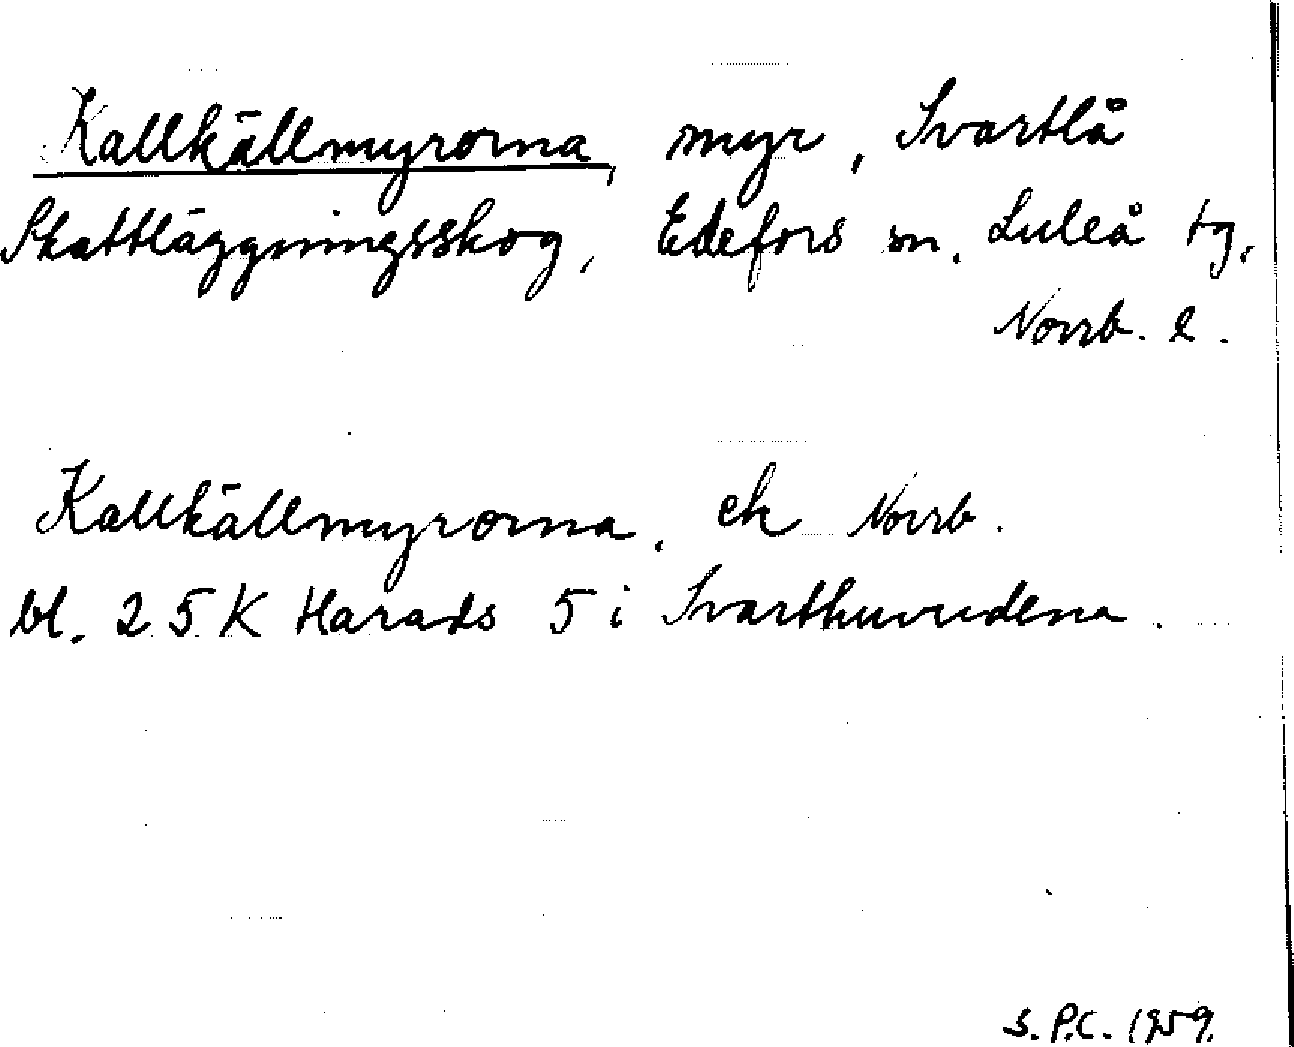 Kallkällmyrorna, myr, Svartlå
Skattläggningsskog, Edefors sn. Luleå tg.
Norrb. l.
Kallkällmyrorna. ek Norrb.
bl. 25 K Harads 5 i Svarthuvudena.
S.P.C. 1959.